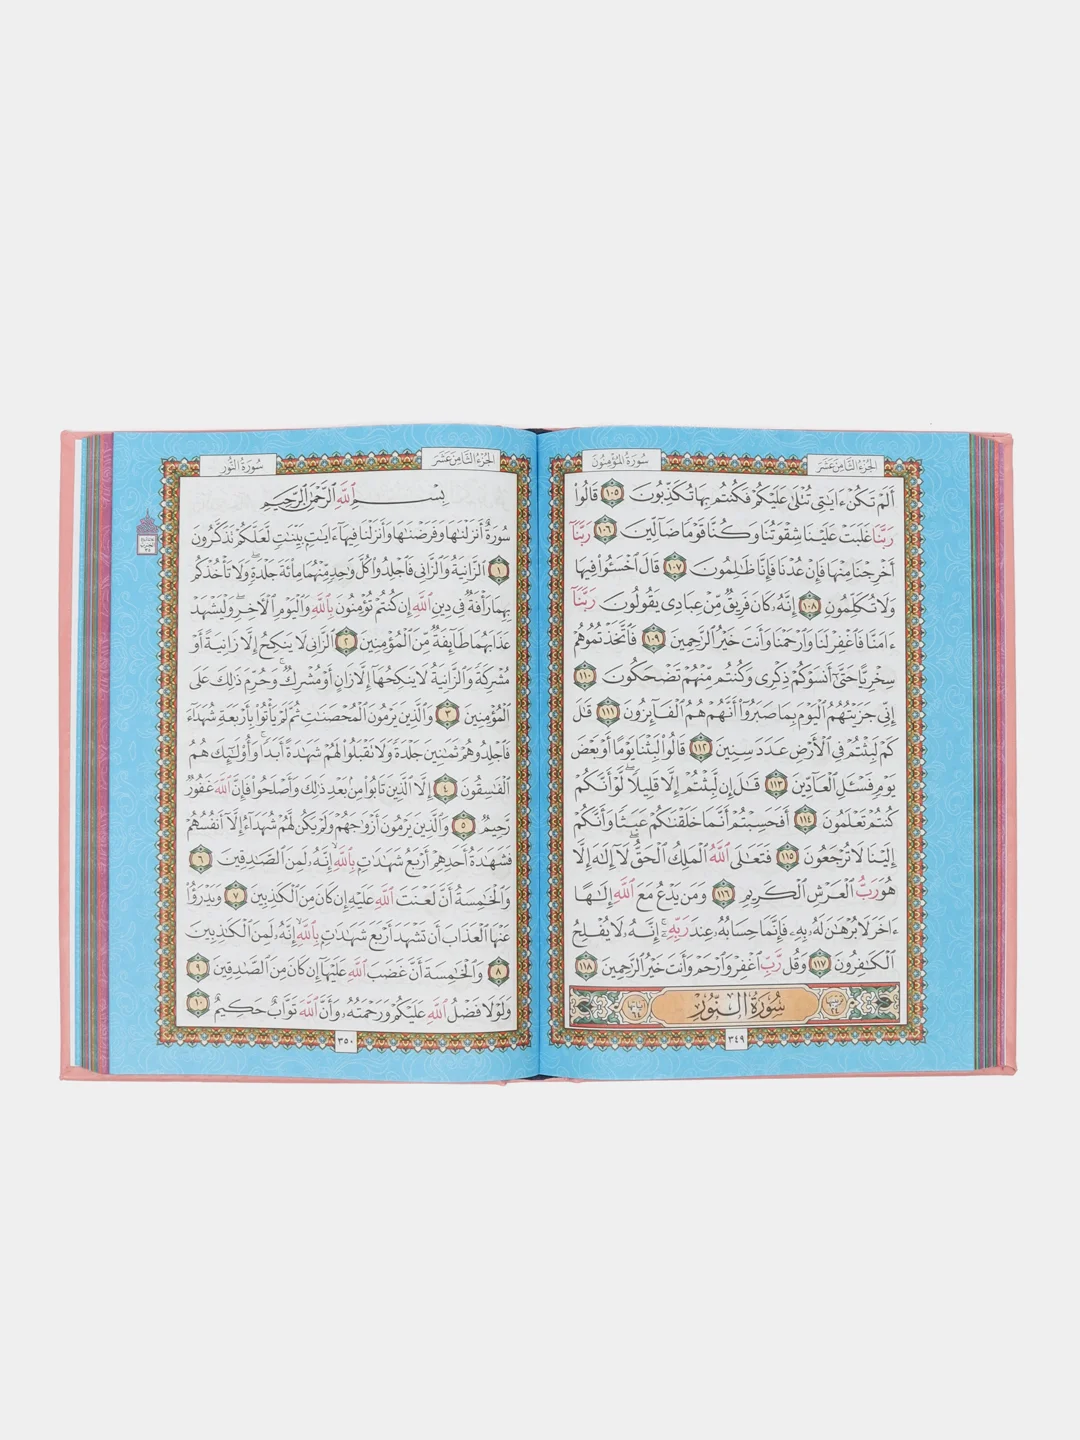 الجزء الثامن عشر
سورة المؤمنون
أَلَمْ تَكُنْ ءَايَٰتِى تُتْلَىٰ عَلَيْكُمْ فَكُنتُم بِهَا تُكَذِّبُونَ ١٠٥ قَالُوا۟
رَبَّنَا غَلَبَتْ عَلَيْنَا شِقْوَتُنَا وَكُنَّا قَوْمًا ضَآلِّينَ ١٠٦ رَبَّنَآ
أَخْرِجْنَا مِنْهَا فَإِنْ عُدْنَا فَإِنَّا ظَٰلِمُونَ ١٠٧ قَالَ ٱخْسَـُٔوا۟ فِيهَا
وَلَا تُكَلِّمُونِ ١٠٨ إِنَّهُۥ كَانَ فَرِيقٌ مِّنْ عِبَادِى يَقُولُونَ رَبَّنَآ
ءَامَنَّا فَٱغْفِرْ لَنَا وَٱرْحَمْنَا وَأَنتَ خَيْرُ ٱلرَّٰحِمِينَ ١٠٩ فَٱتَّخَذْتُمُوهُمْ
سِخْرِيًّا حَتَّىٰٓ أَنسَوْكُمْ ذِكْرِى وَكُنتُم مِّنْهُمْ تَضْحَكُونَ ١١٠
إِنِّى جَزَيْتُهُمُ ٱلْيَوْمَ بِمَا صَبَرُوٓا۟ أَنَّهُمْ هُمُ ٱلْفَآئِزُونَ ١١١ قَٰلَ
كَمْ لَبِثْتُمْ فِى ٱلْأَرْضِ عَدَدَ سِنِينَ ١١٢ قَالُوا۟ لَبِثْنَا يَوْمًا أَوْ بَعْضَ
يَوْمٍ فَسْـَٔلِ ٱلْعَآدِّينَ ١١٣ قَٰلَ إِن لَّبِثْتُمْ إِلَّا قَلِيلًا ۖ لَّوْ أَنَّكُمْ
كُنتُمْ تَعْلَمُونَ ١١٤ أَفَحَسِبْتُمْ أَنَّمَا خَلَقْنَٰكُمْ عَبَثًا وَأَنَّكُمْ
إِلَيْنَا لَا تُرْجَعُونَ ١١٥ فَتَعَٰلَى ٱللَّهُ ٱلْمَلِكُ ٱلْحَقُّ ۖ لَآ إِلَٰهَ إِلَّا
هُوَ رَبُّ ٱلْعَرْشِ ٱلْكَرِيمِ ١١٦ وَمَن يَدْعُ مَعَ ٱللَّهِ إِلَٰهًا
ءَاخَرَ لَا بُرْهَٰنَ لَهُۥ بِهِۦ فَإِنَّمَا حِسَابُهُۥ عِندَ رَبِّهِۦٓ ۚ إِنَّهُۥ لَا يُفْلِحُ
ٱلْكَٰفِرُونَ ١١٧ وَقُل رَّبِّ ٱغْفِرْ وَٱرْحَمْ وَأَنتَ خَيْرُ ٱلرَّٰحِمِينَ ١١٨
سُورَةُ النُّورِ
٣٤٩
الجزء الثامن عشر
سورة النور
بِسْمِ ٱللَّهِ ٱلرَّحْمَٰنِ ٱلرَّحِيمِ
سُورَةٌ أَنزَلْنَٰهَا وَفَرَضْنَٰهَا وَأَنزَلْنَا فِيهَآ ءَايَٰتٍۭ بَيِّنَٰتٍ لَّعَلَّكُمْ تَذَكَّرُونَ
١ ٱلزَّانِيَةُ وَٱلزَّانِى فَٱجْلِدُوا۟ كُلَّ وَٰحِدٍ مِّنْهُمَا مِا۟ئَةَ جَلْدَةٍ ۖ وَلَا تَأْخُذْكُم
بِهِمَا رَأْفَةٌ فِى دِينِ ٱللَّهِ إِن كُنتُمْ تُؤْمِنُونَ بِٱللَّهِ وَٱلْيَوْمِ ٱلْءَاخِرِ ۖ وَلْيَشْهَدْ
عَذَابَهُمَا طَآئِفَةٌ مِّنَ ٱلْمُؤْمِنِينَ ٢ ٱلزَّانِى لَا يَنكِحُ إِلَّا زَانِيَةً أَوْ
مُشْرِكَةً وَٱلزَّانِيَةُ لَا يَنكِحُهَآ إِلَّا زَانٍ أَوْ مُشْرِكٌ ۚ وَحُرِّمَ ذَٰلِكَ عَلَى
ٱلْمُؤْمِنِينَ ٣ وَٱلَّذِينَ يَرْمُونَ ٱلْمُحْصَنَٰتِ ثُمَّ لَمْ يَأْتُوا۟ بِأَرْبَعَةِ شُهَدَآءَ
فَٱجْلِدُوهُمْ ثَمَٰنِينَ جَلْدَةً وَلَا تَقْبَلُوا۟ لَهُمْ شَهَٰدَةً أَبَدًا ۚ وَأُو۟لَٰٓئِكَ هُمُ
ٱلْفَٰسِقُونَ ٤ إِلَّا ٱلَّذِينَ تَابُوا۟ مِنۢ بَعْدِ ذَٰلِكَ وَأَصْلَحُوا۟ فَإِنَّ ٱللَّهَ غَفُورٌ
رَّحِيمٌ ٥ وَٱلَّذِينَ يَرْمُونَ أَزْوَٰجَهُمْ وَلَمْ يَكُن لَّهُمْ شُهَدَآءُ إِلَّآ أَنفُسُهُمْ
فَشَهَٰدَةُ أَحَدِهِمْ أَرْبَعُ شَهَٰدَٰتٍۭ بِٱللَّهِ ۙ إِنَّهُۥ لَمِنَ ٱلصَّٰدِقِينَ ٦
وَٱلْخَٰمِسَةُ أَنَّ لَعْنَتَ ٱللَّهِ عَلَيْهِ إِن كَانَ مِنَ ٱلْكَٰذِبِينَ ٧ وَيَدْرَؤُا۟
عَنْهَا ٱلْعَذَابَ أَن تَشْهَدَ أَرْبَعَ شَهَٰدَٰتٍۭ بِٱللَّهِ ۙ إِنَّهُۥ لَمِنَ ٱلْكَٰذِبِينَ
٨ وَٱلْخَٰمِسَةَ أَنَّ غَضَبَ ٱللَّهِ عَلَيْهَآ إِن كَانَ مِنَ ٱلصَّٰدِقِينَ ٩
وَلَوْلَا فَضْلُ ٱللَّهِ عَلَيْكُمْ وَرَحْمَتُهُۥ وَأَنَّ ٱللَّهَ تَوَّابٌ حَكِيمٌ ١٠
٣٥٠